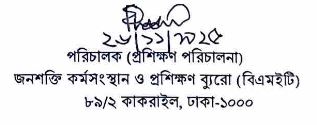 ২৬/১১/২০২৫
পরিচালক (প্রশিক্ষণ পরিচালনা)
জনশক্তি কর্মসংস্থান ও প্রশিক্ষণ ব্যুরো (বিএমইটি)
৮৯/২ কাকরাইল, ঢাকা-১০০০